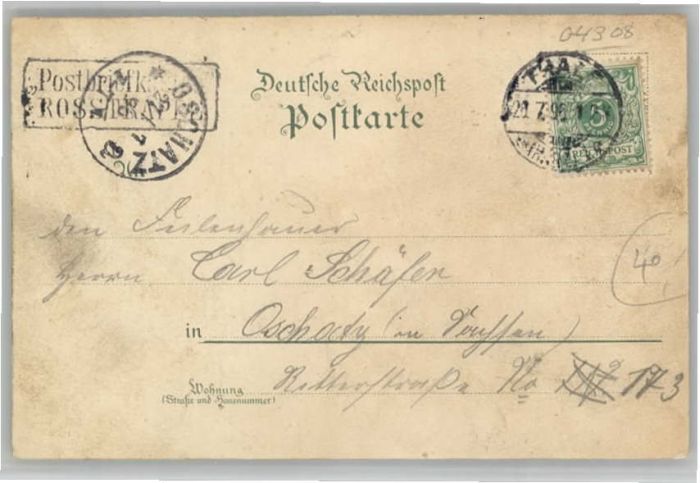 04308
Postbriefk
ROSSTR
OSCHATZ
Deutsche Reichspost
Postkarte
THALE
20. 7. 96
5
REICHSPOST
den Feilenhauer
Herrn Carl Schäfer
40
in Oschatz (in Sachsen)
Wohnung
(Straße und Hausnummer)
Ritterstraße No 173